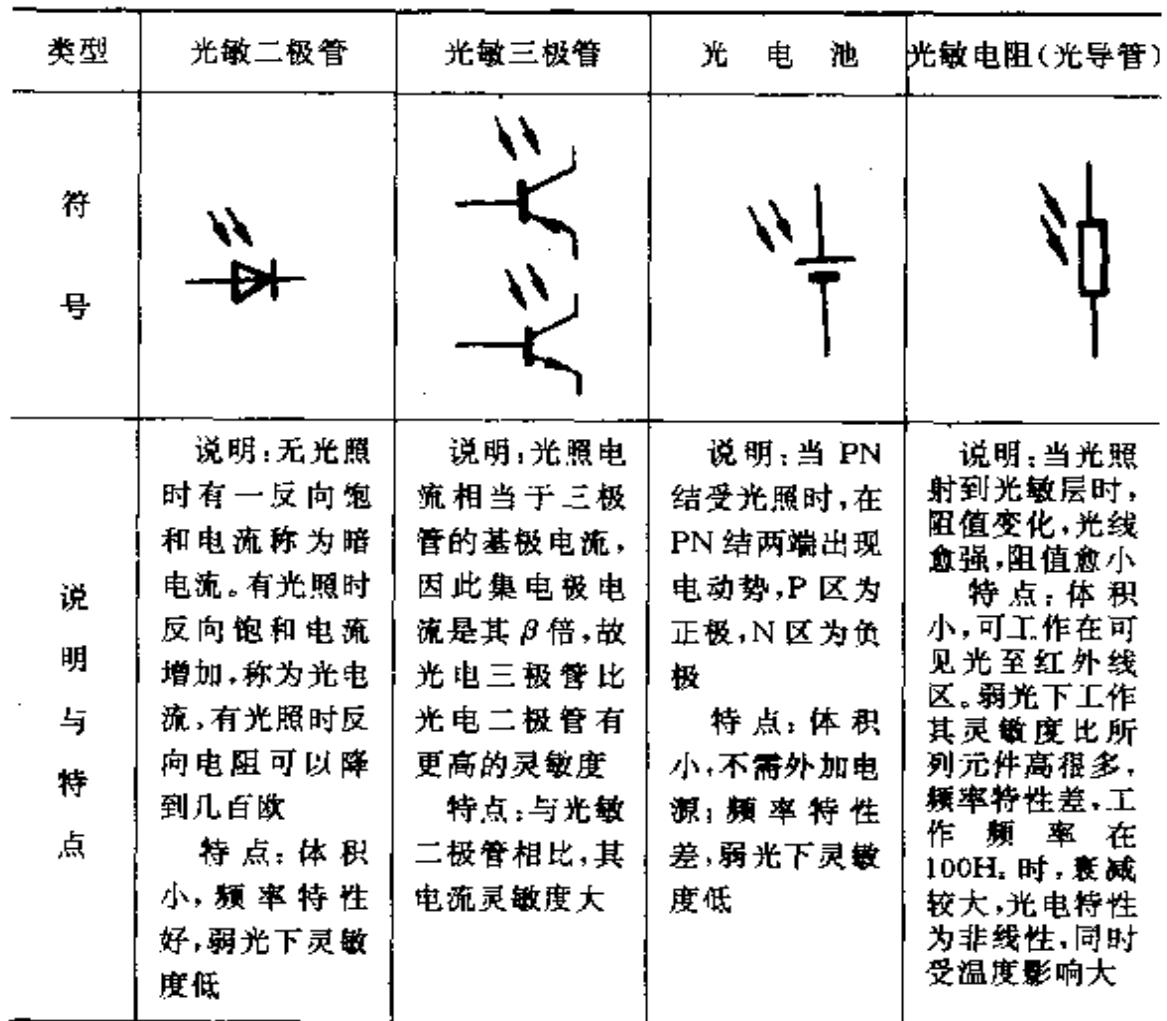 类型
光敏二极管
光敏三极管
光电池
光敏电阻(光导管)
符
号
说
明
与
特
点
说明:无光照
时有一反向饱
和电流称为暗
电流。有光照时
反向饱和电流
增加,称为光电
流,有光照时反
向电阻可以降
到几百欧
特点:体积
小,频率特性
好,弱光下灵敏
度低
说明:光照电
流相当于三极
管的基极电流,
因此集电极电
流是其β倍,故
光电三极管比
光电二极管有
更高的灵敏度
特点:与光敏
二极管相比,其
电流灵敏度大
说明:当 PN
结受光照时,在
PN 结两端出现
电动势,P 区为
正极,N 区为负
极
特点:体积
小,不需外加电
源;频率特性
差,弱光下灵敏
度低
说明:当光照
射到光敏层时,
阻值变化,光线
愈强,阻值愈小
特点:体积
小,可工作在可
见光至红外线
区。弱光下工作
其灵敏度比所
列元件高很多,
频率特性差,工
作频率在
100Hz 时,衰减
较大,光电特性
为非线性,同时
受温度影响大